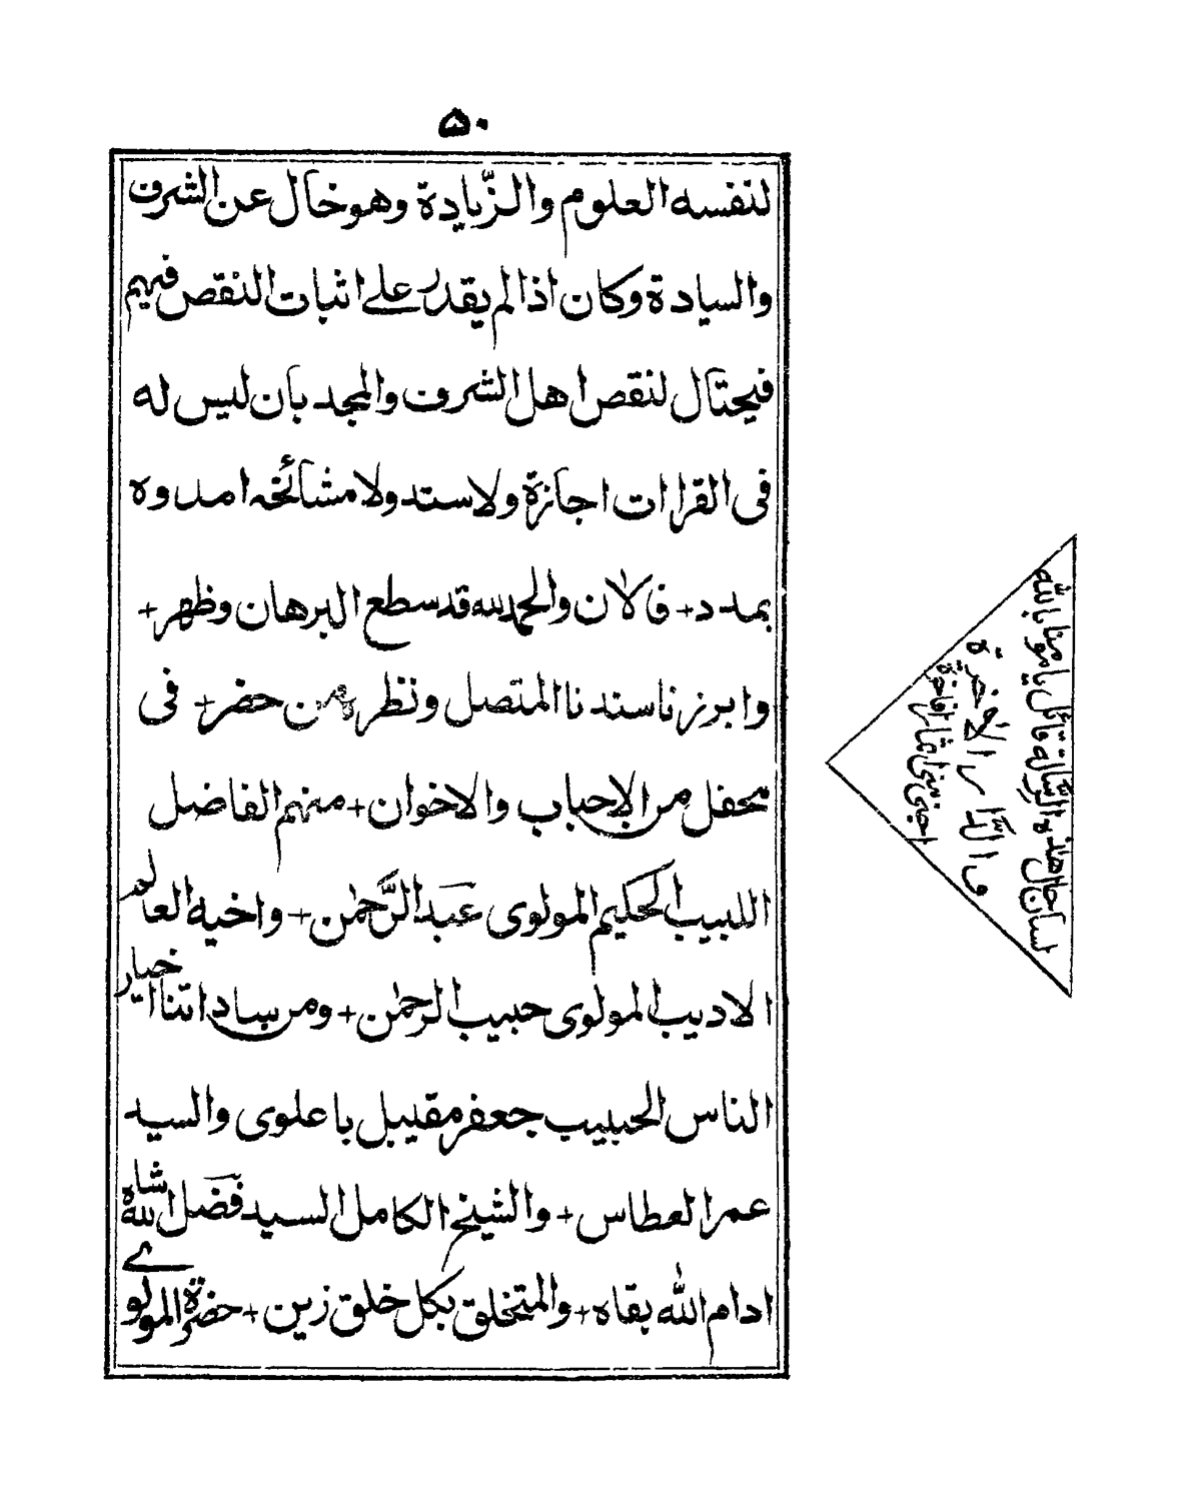 ۵۰
لنفسه العلوم والزّيادة وهو خال عن الشرف
والسيادة وكان اذا لم يقدر على اثبات النقص فيهم
فيحتال لنقص اهل الشرف والمجد بان ليس له
فى القراات اجازة ولا سند ولا مشائخه امدوه
بمدد + فالآن والحمد لله قد سطع البرهان وظهر +
وابرزنا سندنا المتصل ونظره من حضر + فى
محفل من الاحباب والاخوان + منهم الفاضل
اللبيب الحكيم المولوى عبد الرَّحمٰن + واخيه العالم
الاديب المولوى حبيب الرحمٰن + ومن ساداتنا اخيار
الناس الحبيب جعفر مقيبل باعلوى والسيد
عمر العطاس + والشيخ الكامل السيد فضل الله شاه
ادام الله بقاه + والمتخلق بكل خلق زين + حضرة المولوے
لسان حال هذه الرسالة قائل يا مومنا بالله
والدَّار الآخرة
اجنى من اثمار فاخرة